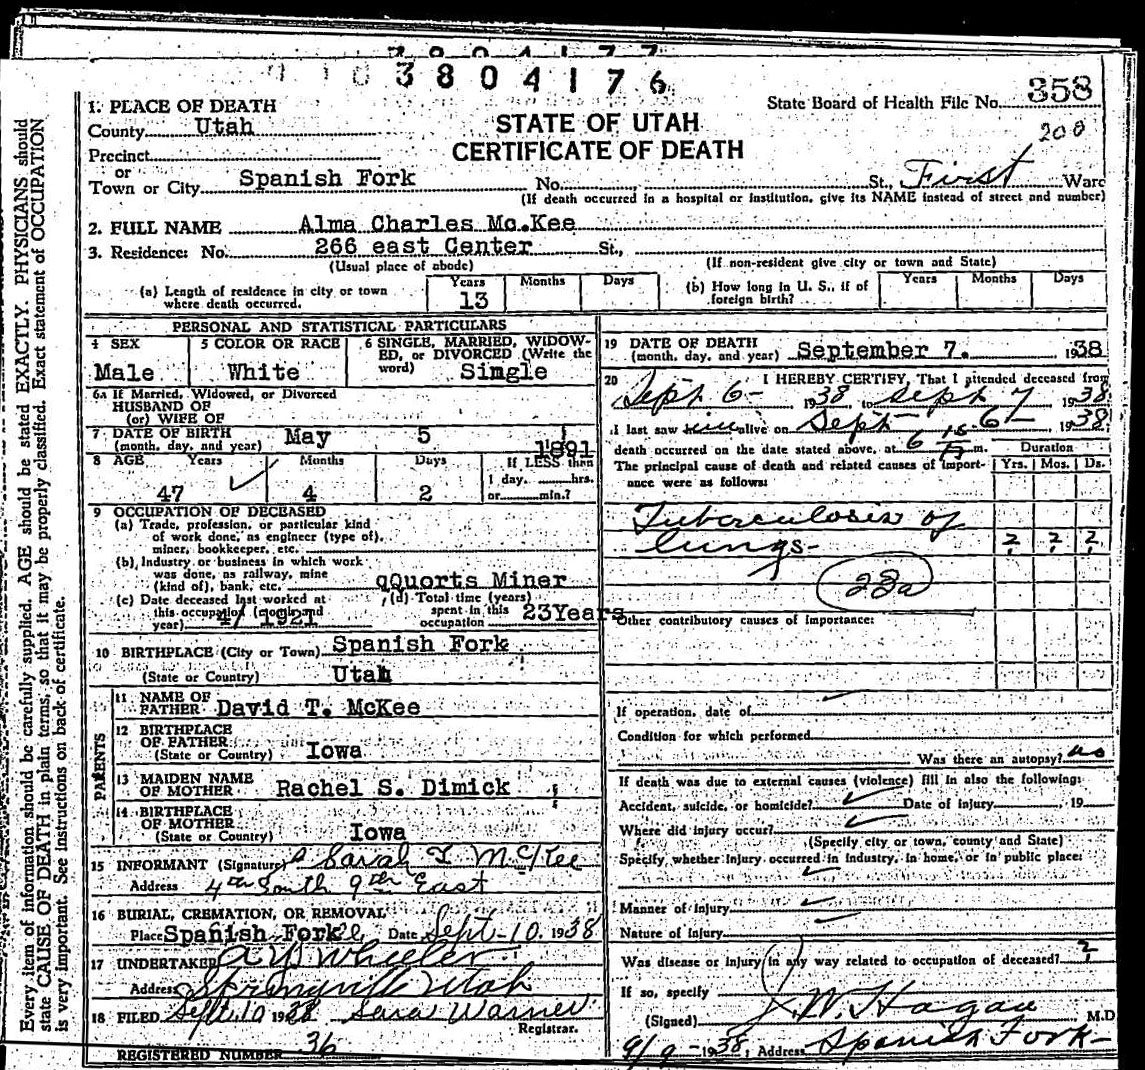 3804177
3804176
State Board of Health File No. 358
200
STATE OF UTAH
CERTIFICATE OF DEATH
1. PLACE OF DEATH
County Utah
Precinct
or
Town or City Spanish Fork No. St., First Ward
(If death occurred in a hospital or institution, give its NAME instead of street and number)
2. FULL NAME Alma Charles Mc.Kee
3. Residence: No. 266 east Center St.,
(Usual place of abode) (If non-resident give city or town and State)
(a) Length of residence in city or town where death occurred. Years 13 Months Days
(b) How long in U. S., if of foreign birth? Years Months Days
PERSONAL AND STATISTICAL PARTICULARS
4 SEX Male
5 COLOR OR RACE White
6 SINGLE, MARRIED, WIDOWED, or DIVORCED (Write the word) Simgle
6a If Married, Widowed, or Divorced
HUSBAND OF
(or) WIFE OF
7 DATE OF BIRTH (month, day, and year) May 5 1891
8 AGE Years 47 Months 4 Days 2 If LESS than 1 day, hrs. or min.?
9 OCCUPATION OF DECEASED
(a) Trade, profession, or particular kind
of work done, as engineer (type of),
miner, bookkeeper, etc.
(b) Industry or business in which work
was done, as railway, mine
(kind of), bank, etc. qQuorts Miner
(c) Date deceased last worked at this occupation (month and year) 4/ 1921
(d) Total time (years) spent in this occupation 23Years
10 BIRTHPLACE (City or Town) Spanish Fork
(State or Country) Utah
PARENTS
11 NAME OF FATHER David T. McKee
12 BIRTHPLACE OF FATHER (State or Country) Iowa
13 MAIDEN NAME OF MOTHER Rachel S. Dimick
14 BIRTHPLACE OF MOTHER (State or Country) Iowa
15 INFORMANT (Signature) Sarah T McKee
Address 4th South 9th East
16 BURIAL, CREMATION, OR REMOVAL
Place Spanish Fork Date Sept-10. 1938
17 UNDERTAKER A Y Wheeler
Address Springville Utah
18 FILED Sept 10 1938 Sara Warner
Registrar.
REGISTERED NUMBER 36
19 DATE OF DEATH (month, day, and year) September 7. 1938
20 I HEREBY CERTIFY, That I attended deceased from
Sept 6- 1938 to Sept 7 1938
I last saw him alive on Sept- 6- 1938
death occurred on the date stated above, at 6 15 m.
Duration
The principal cause of death and related causes of importance were as follows: Yrs. Mos. Ds.
Tuberculosis of
lungs- ? ? ?
28a
Other contributory causes of importance:
If operation, date of
Condition for which performed
Was there an autopsy? no
If death was due to external causes (violence) fill in also the following:
Accident, suicide, or homicide? Date of injury , 19
Where did injury occur?
(Specify city or town, county and State)
Specify whether injury occurred in industry, in home, or in public place:
Manner of injury
Nature of injury
Was disease or injury in any way related to occupation of deceased? ?
If so, specify
(Signed) J. W. Hagan M.D
9/9-1938, Address Spanish Fork-
Every item of information should be carefully supplied. AGE should be stated EXACTLY. PHYSICIANS should
state CAUSE OF DEATH in plain terms, so that it may be properly classified. Exact statement of OCCUPATION
is very important. See instructions on back of certificate.